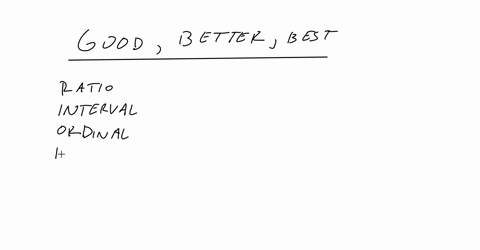 GOOD, BETTER, BEST
RATIO
INTERVAL
ORDINAL